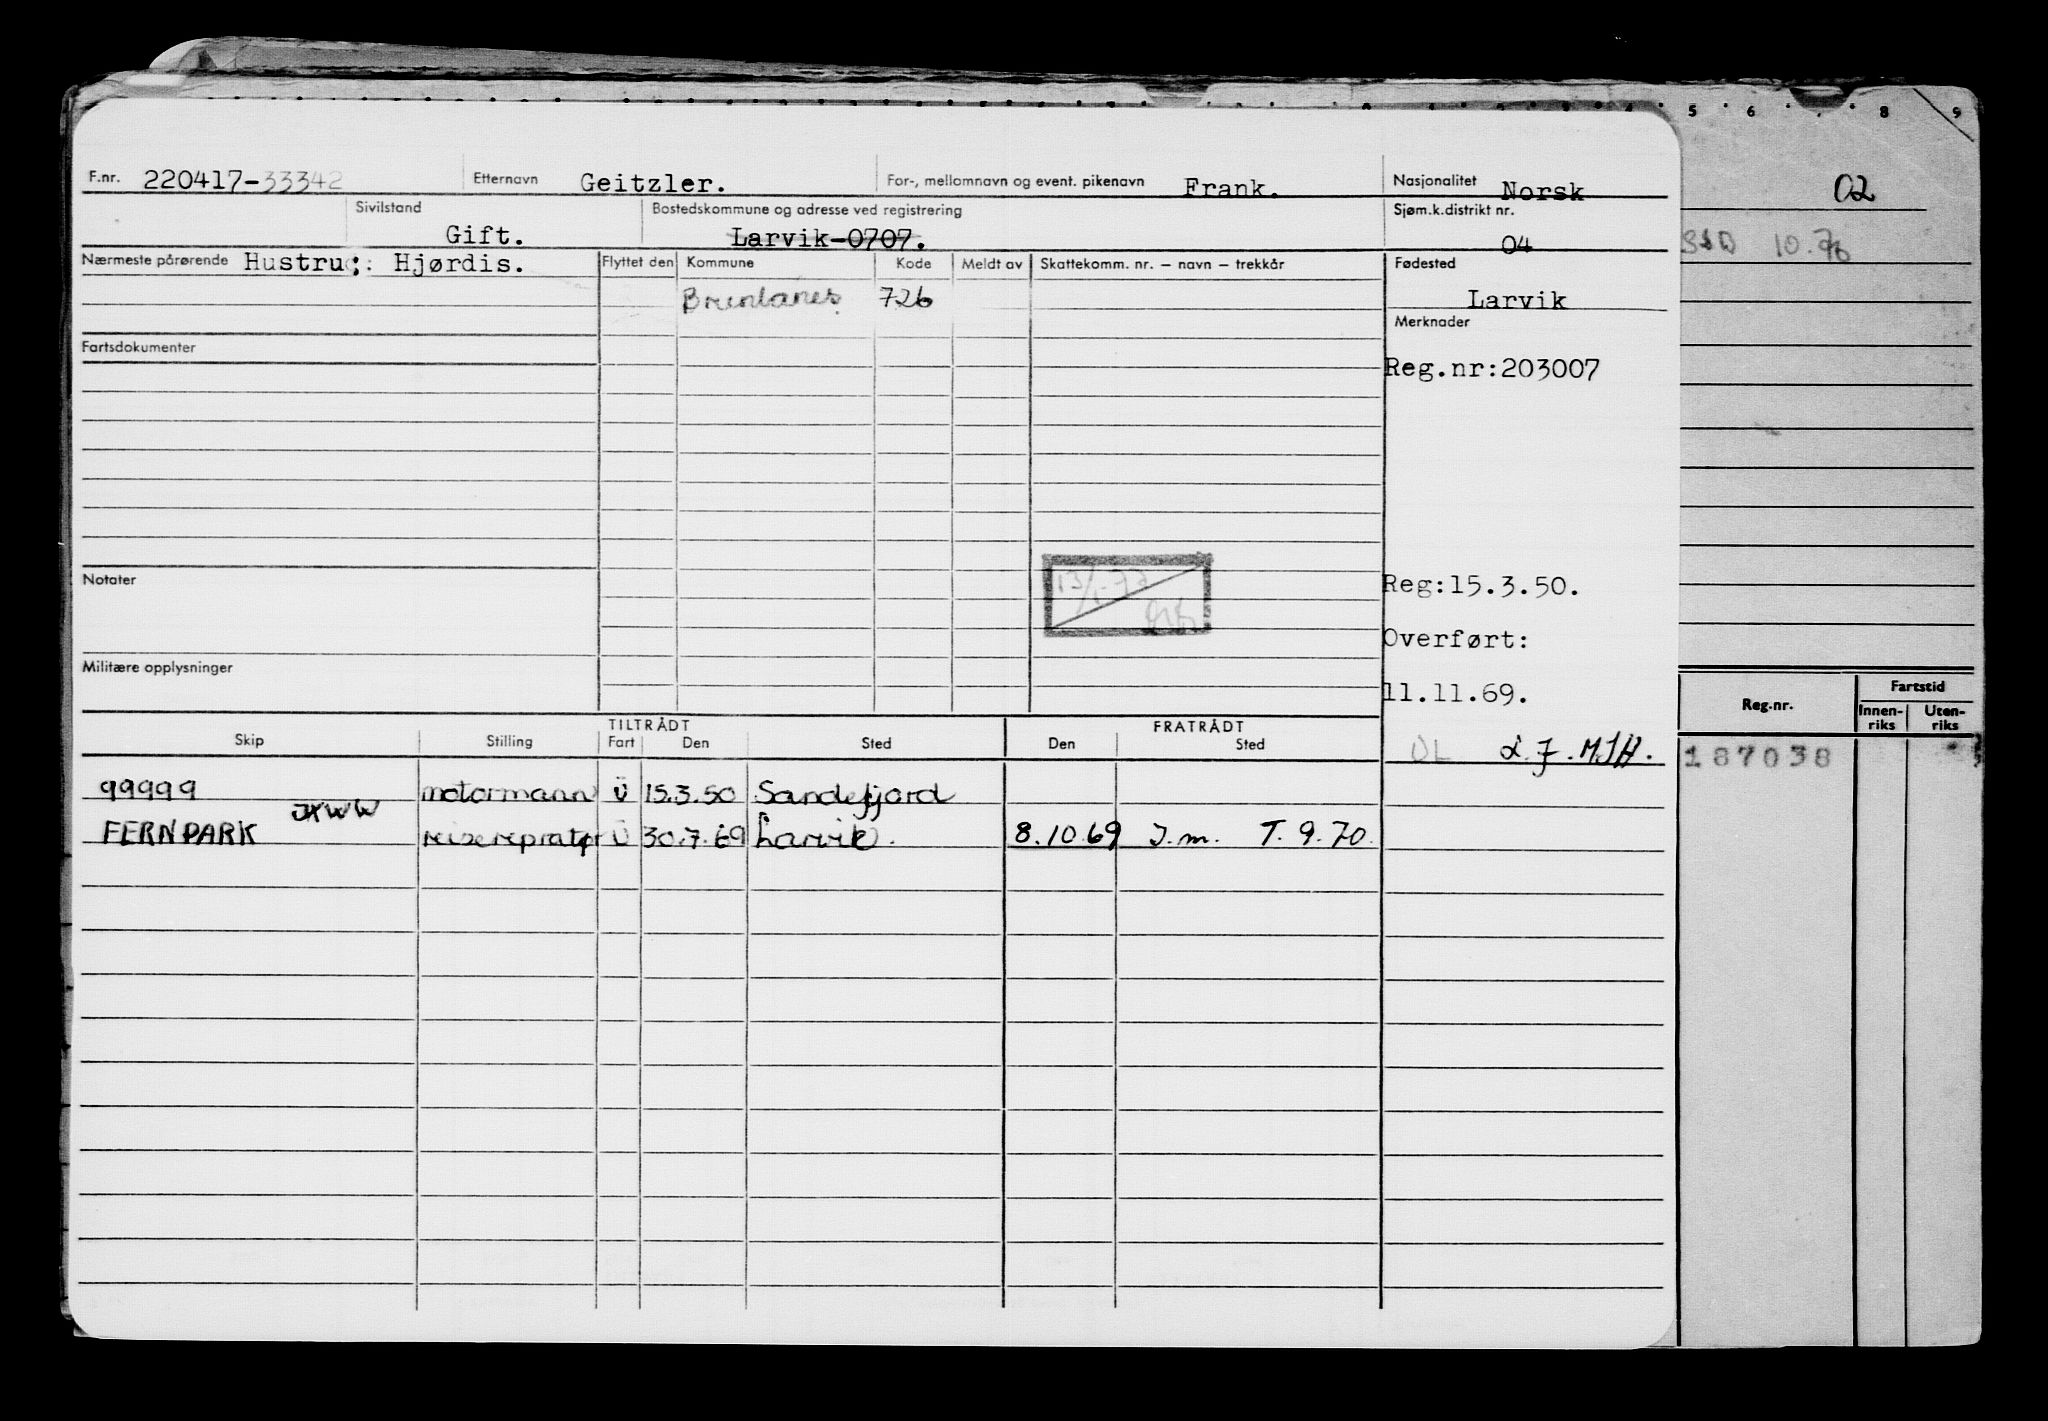 5 6 8 9
F.nr. 220417-33342 Etternavn Geitzler. For-, mellomnavn og event. pikenavn Frank. Nasjonalitet Norsk
02
Sivilstand Gift. Bostedskommune og adresse ved registrering Larvik-0707. Sjøm.k.distrikt nr. 04
10.76
Nærmeste pårørende Hustru: Hjørdis. Flyttet den Kommune Kode Meldt av Skattekomm. nr. – navn – trekkår Fødested
Brunlanes 726 Larvik
Merknader
Fartsdokumenter
Reg.nr:203007
Notater
Reg:15.3.50.
Overført:
Militære opplysninger
11.11.69.
Reg.nr. Fartstid
Innen-riks Uten-riks
TILTRÅDT FRATRÅDT
Skip Stilling Fart Den Sted Den Sted
187038
99999 motormann U 15.3.50 Sandefjord
JXWW
FERNPARK reiserepratør U 30.7.69 Larvik. 8.10.69 J.m. T. 9.70.